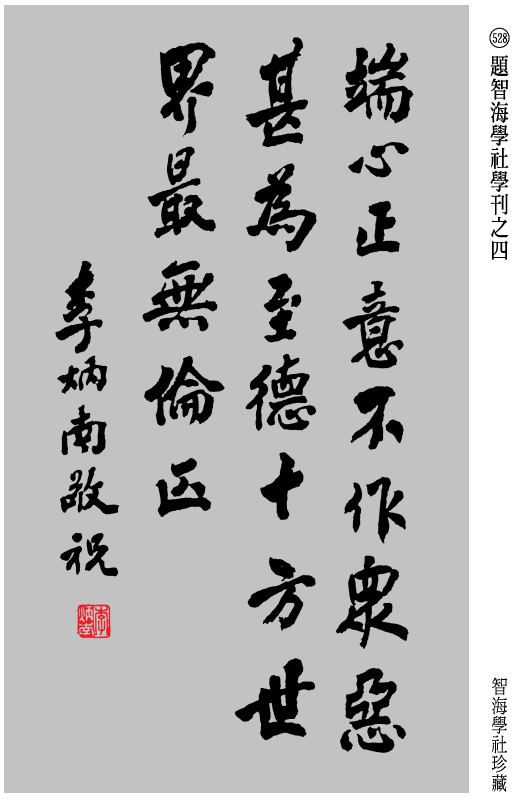 528 題智海學社學刊之四
智海學社珍藏
端心正意不作眾惡
甚為至德十方世
界最無倫匹
李炳南敬祝
李炳南